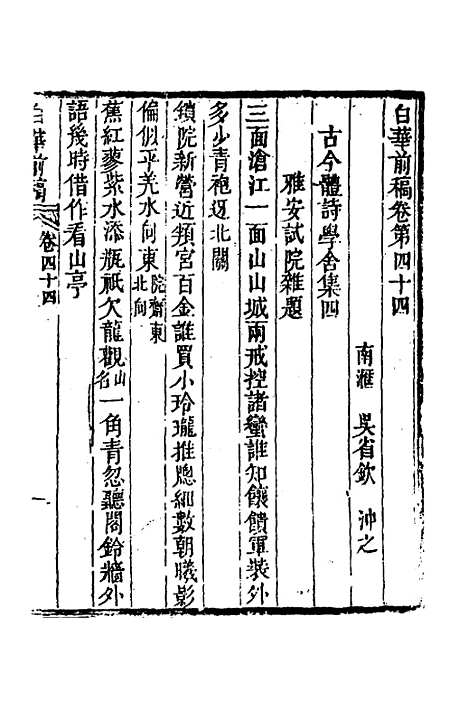 白華前稿卷第四十四
南滙 吳省欽 沖之
古今體詩學舍集四
雅安試院雜題
三面滄江一面山山城兩戒控諸蠻誰知餽饋軍裝外
多少青袍迓北關
鎖院新營近頖宮百金誰買小玲瓏推牕細數朝曦影
偏似平羌水向東院齋東北向
蕉紅蓼紫水添瓶祇欠龍觀山名一角青忽聽閣鈴牆外
語幾時借作看山亭
白華前稿 卷四十四 一